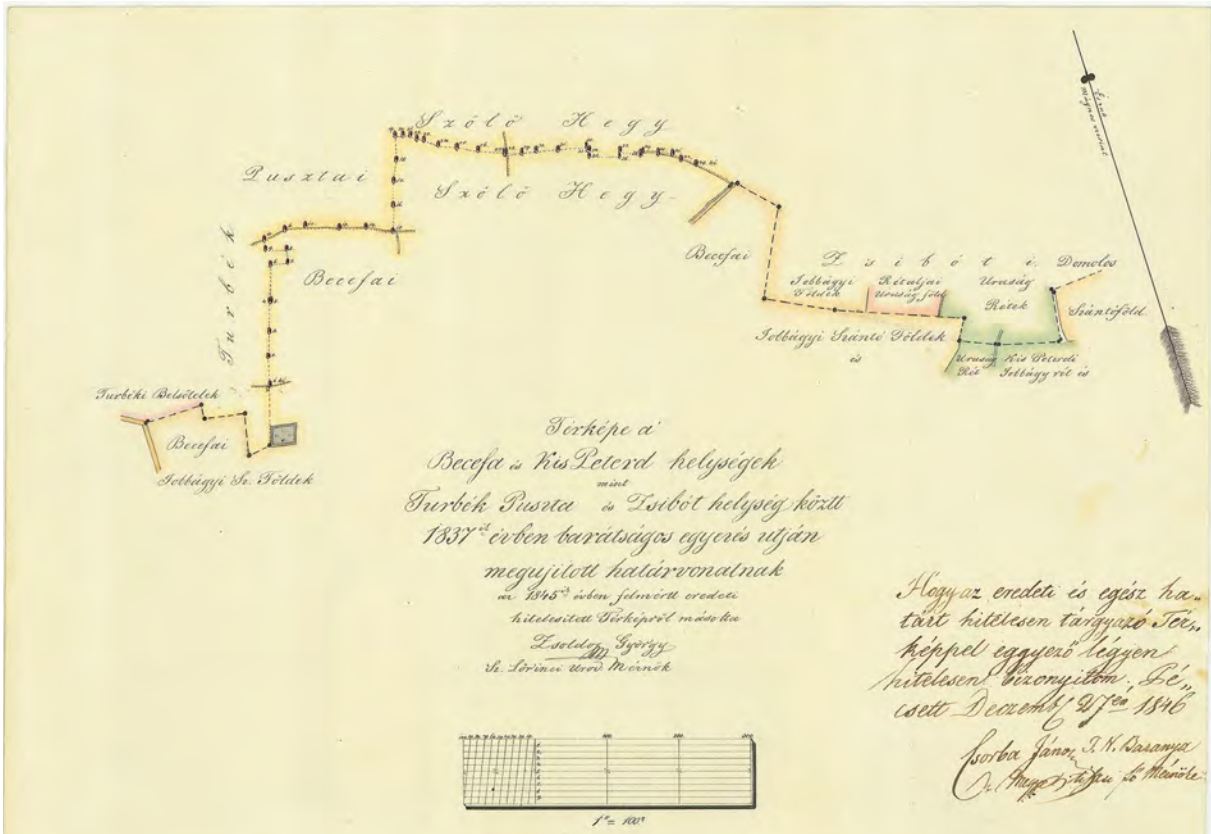 Szőlő Hegy
Pusztai
Szőlő Hegy
Észak
Turbék
Becefai
Becefai
Zsibóti
Domolos
Jobbágyi
Földek
Rétaljai
Uraság föld
Uraság
Rétek
Szántóföld
Jobbágyi Szántó Földek
és
Uraság
Rét
Kis Peterdi
Jobbágy rét és
Turbéki Belsőtelek
Becefai
Jobbágyi Sz. Földek
Térképe a'
Becefa és Kis Peterd helységek
mint
Turbék Puszta és Zsibót helység köztt
1837ik évben barátságos egyezés utján
megujitott határvonalnak
az 1845ik évben felmértt eredeti
hitelesitett Térképről másolta
Zsoldos György
Sz. Lőrinci Urod. Mérnök
Hogy az eredeti és egész ha„
tárt hitelesen tárgyazó Tér„
képpel eggyező légyen
hitelesen bizonyitom. Pé„
csett Deczemb. 27én 1846
Csorba János T. N. Baranya
fő Mérnöke
1" = 100°